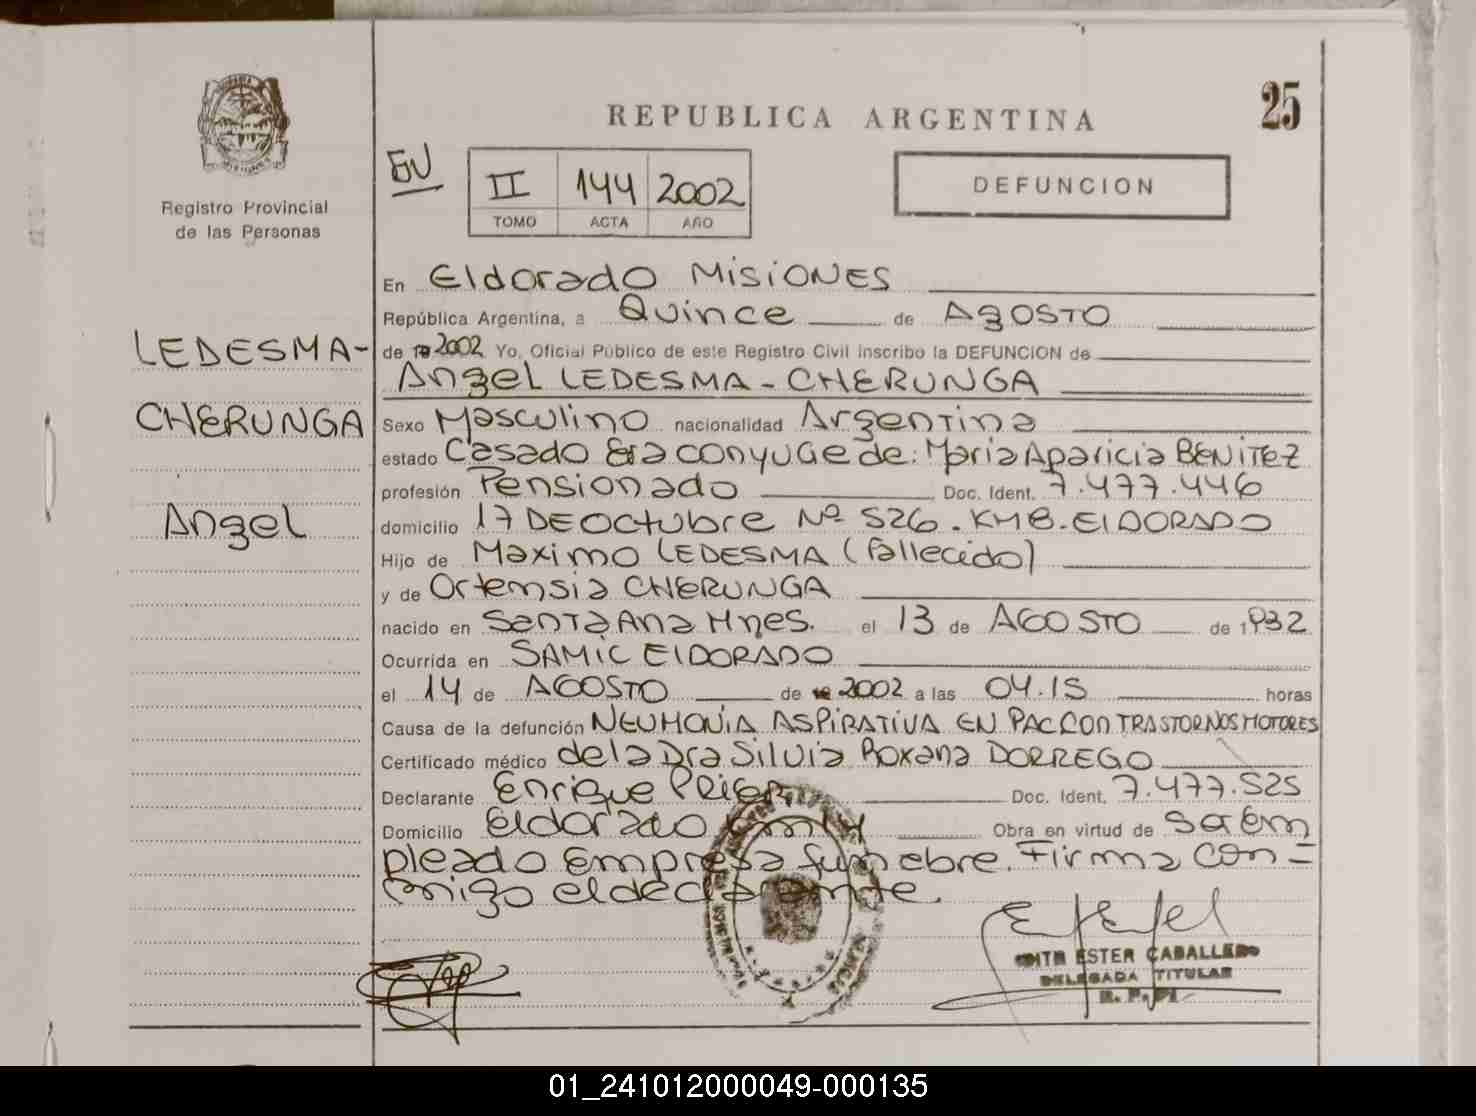 25
REPUBLICA ARGENTINA
II 144 2002
TOMO ACTA AÑO
DEFUNCION
Registro Provincial
de las Personas
LEDESMA-
CHERUNGA
Angel
En Eldorado MISIONES
República Argentina, a Quince de AGOSTO
de 2002 Yo, Oficial Público de este Registro Civil inscribo la DEFUNCION de
Angel LEDESMA - CHERUNGA
Sexo Masculino nacionalidad Argentina
estado Casado Era conyuge de: Maria Aparicia BENITEZ
profesión Pensionado Doc. Ident. 7.477.446
domicilio 17 DE Octubre Nº 526. KM 8. ElDORADO
Hijo de Maximo LEDESMA (fallecido)
y de Ortemsia CHERUNGA
nacido en Santa Ana Mnes. el 13 de AGOSTO de 1932
Ocurrida en SAMIC ElDORADO
el 14 de AGOSTO de 2002 a las 04.15 horas
Causa de la defunción NEUMONIA ASPIRATIVA EN PAC CON TRASTORNOS MOTORES
Certificado médico de la Dra Silvia Roxana DORREGO
Declarante Enrique Doc. Ident. 7.477.525
Domicilio Eldorado Obra en virtud de Ser Em
pleado Empresa funebre. Firma con-
migo el declarante.
ESTER CABALLERO
DELEGADA TITULAR
01_241012000049-000135